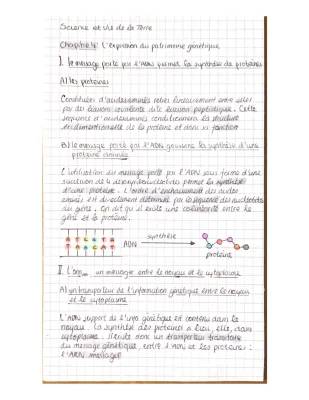 Science et Vie de la Terre
Chapitre 4 : L'expression du patrimoine génétique
I. le message porté par l'ADN permet la synthèse de protéines
A) les protéines
Constituées d'acides aminés reliés linéairement entre elles
par des liaisons covalentes dite liaison peptidique. Cette
séquence d'acides aminés conditionnera la structure
tridimensionnelle de la protéine et donc sa fonction
B) le message porté par l'ADN gouverne la synthèse d'une
protéine donnée
L'utilisation du message porté par l'ADN sous forme d'une
succession de 4 désoxyribonucléotides permet la synthèse
d'une protéine. L'ordre d'enchaînement des acides
aminés est directement déterminé par la séquence des nucléotides
du gène. On dit qu'il existe une colinéarité entre le
gène et la protéine.
synthèse
ADN
protéine
II. L'ARNm, un messager entre le noyau et le cytoplasme
A) un transporteur de l'information génétique entre le noyau
et le cytoplasme
L'ADN support de l'info génétique est contenu dans le
noyau. La synthèse des protéines a lieu, elle, dans
cytoplasme. Il existe donc un transporteur transitoire
du message génétique, entre l'ADN et les protéines :
l'ARN messager